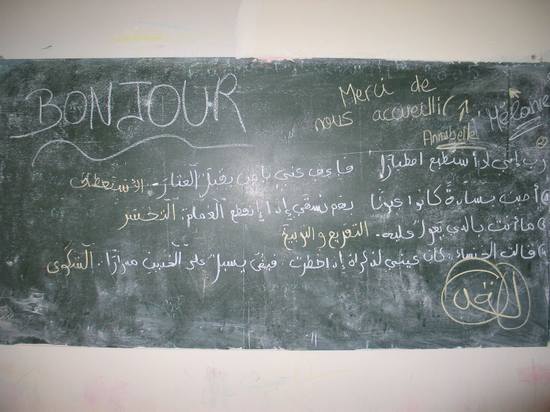 BONJOUR
Merci de
nous accueillir
Annabelle
Mélanie
رب إني لا أستطيع اصطبارا فاعف عني يا من يقيل العثار. الاستعطاف
بسادة كانوا عيونا بهم نسقى إذا انقطع الغمام. التحسر
ما أنت بالذي يعول عليه. التقريع والتوبيخ
قالت الخنساء: كأن عيني لذكراه إذا خطرت فيض يسيل على الخدين مدرارا. الشكوى